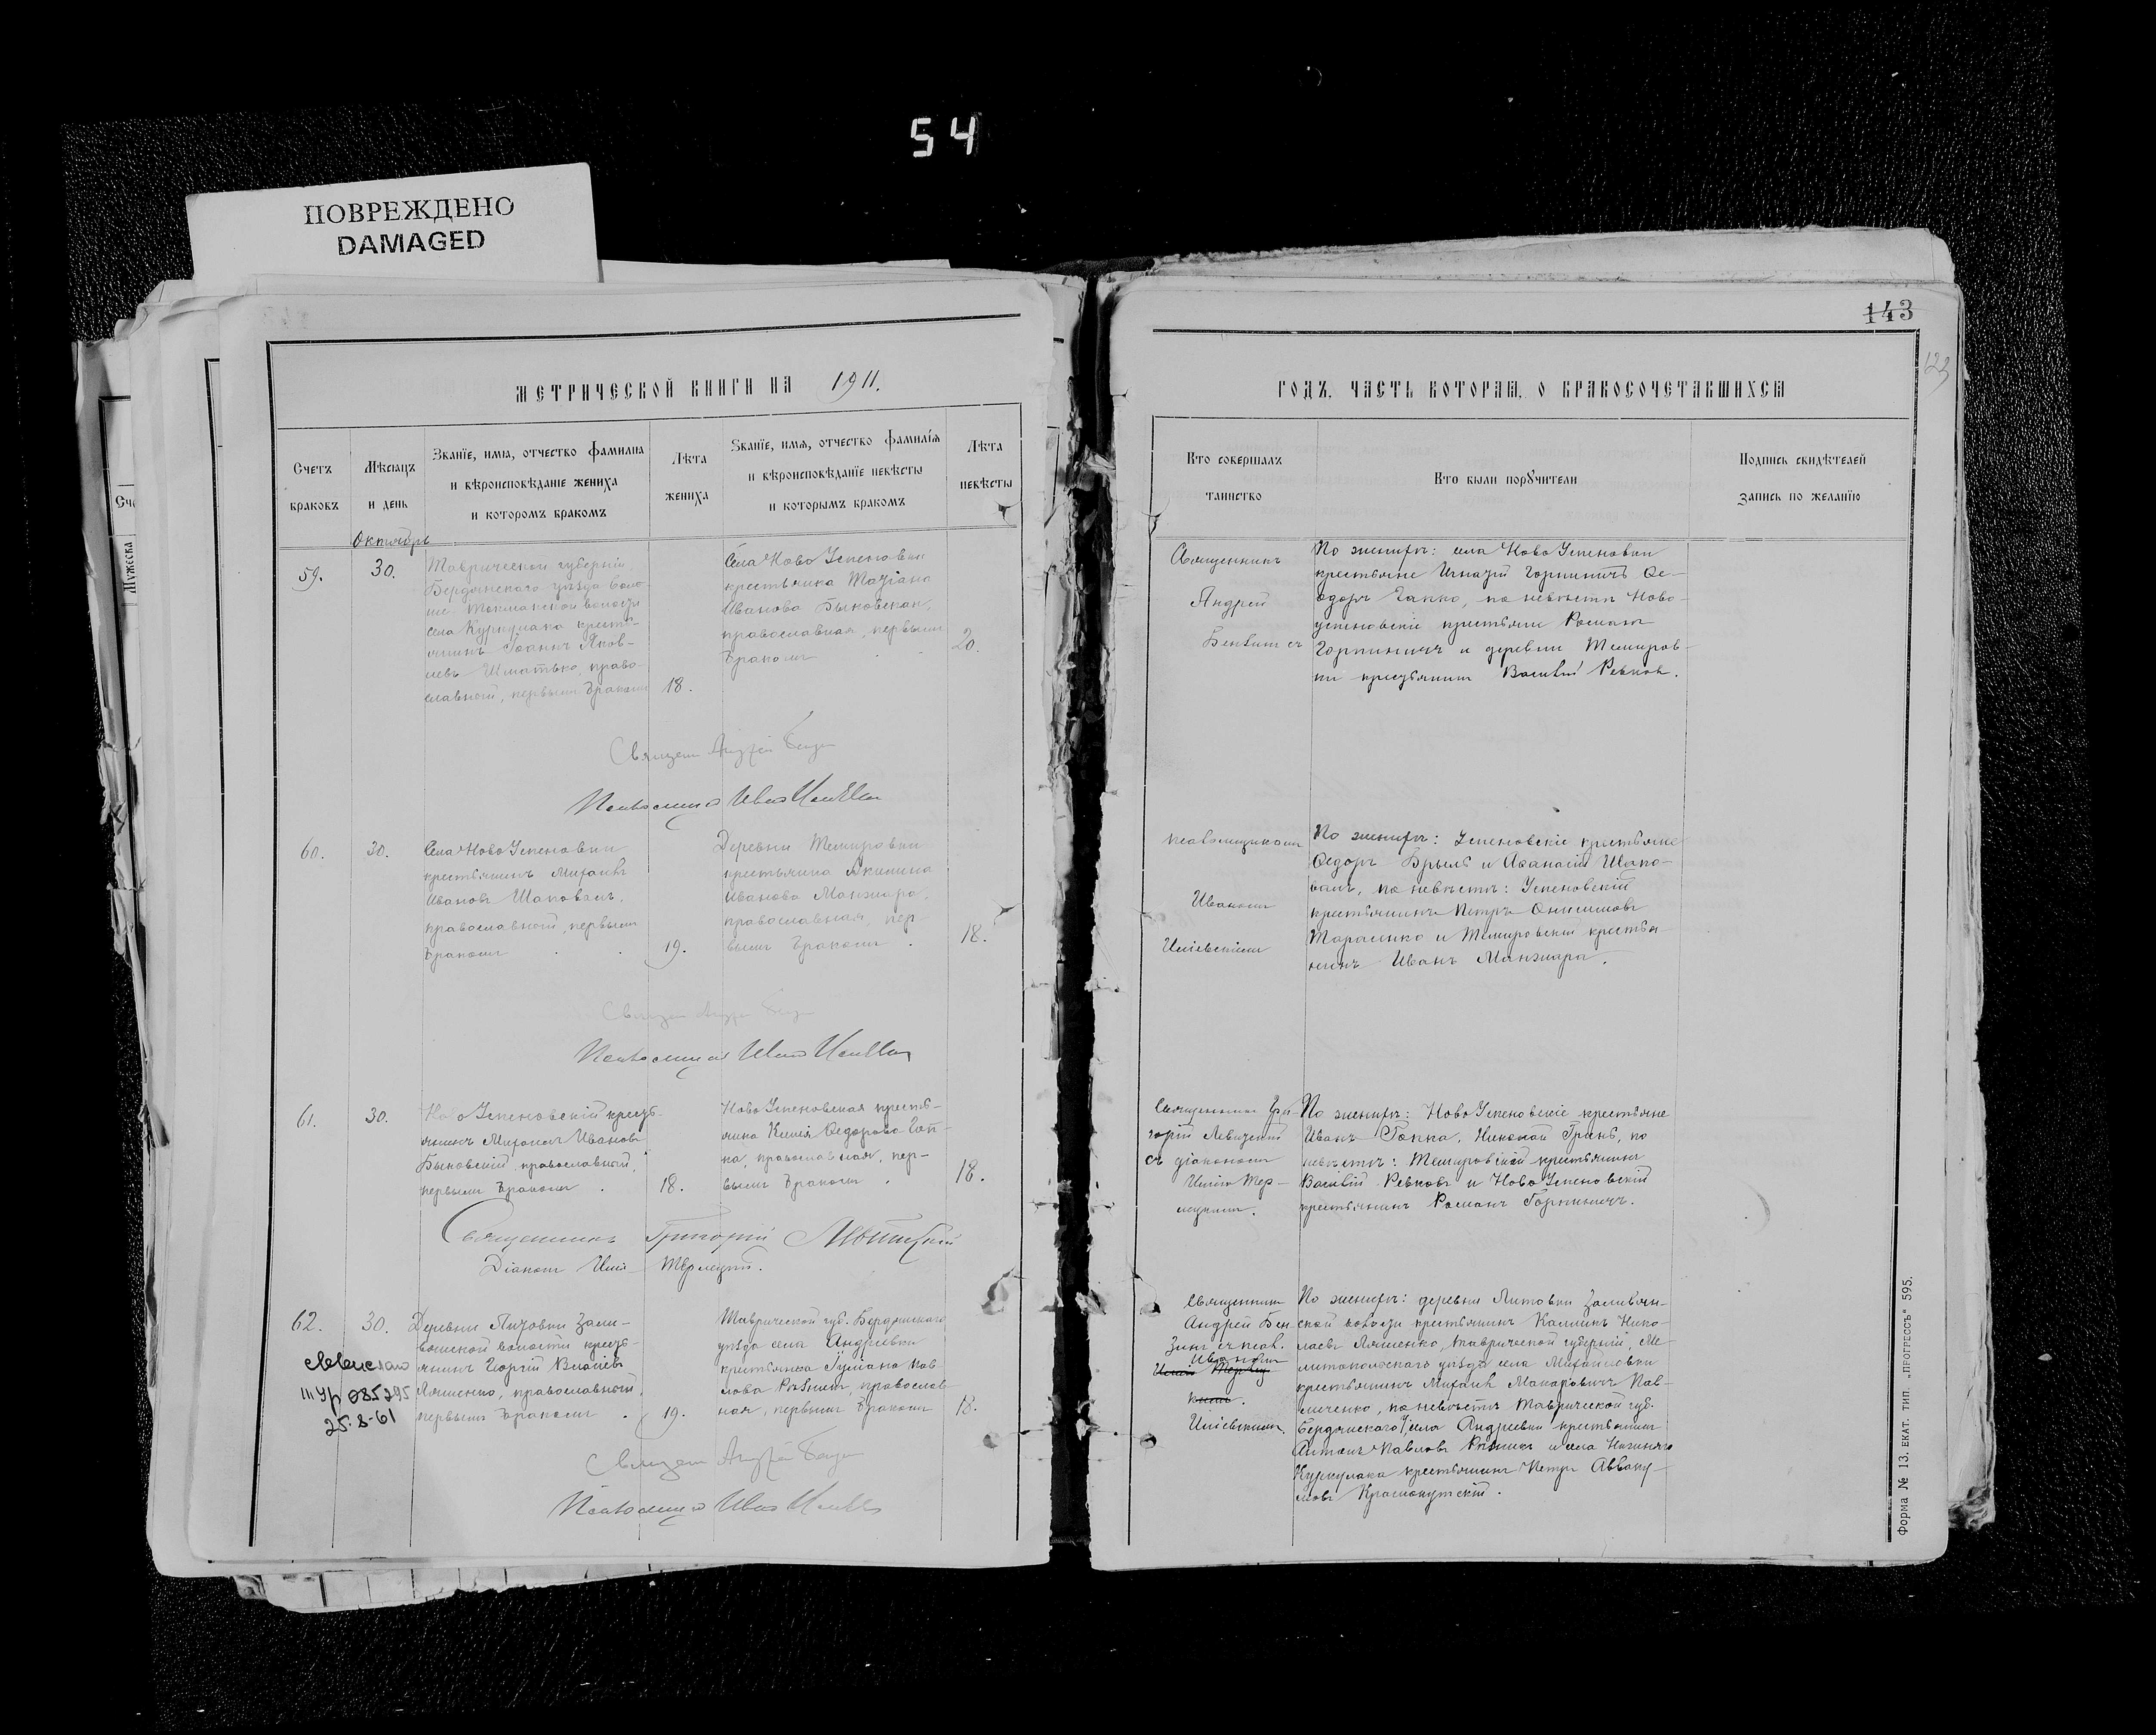 54
ПОВРЕЖДЕНО
DAMAGED
МЕТРИЧЕСКОЙ КНИГИ НА 1911.
Счетъ
браковъ
Мѣсяцъ
и день
Званїе, имя, отчество фамилїа
и вѣроисповѣданїе жениха
и которомъ бракомъ
Лѣта
жениха
Званїе, имя, отчество фамилїя
и вѣроисповѣданїе невѣсты
и которымъ бракомъ
Лѣта
невѣсты
Октябрь
59.
30.
Таврической губерніи,
Бердянскаго уѣзда Боль-
ше Токмакской волости
села Куркулака кресть-
янинъ Іоаннъ Яков-
левъ Шматько, право-
славный, первымъ бракомъ
18.
Села Ново Успеновки
крестьянка Татіана
Иванова Быковская,
православная, первымъ
бракомъ
20.
Священ Андрей
Псаломщикъ Иван
60.
30.
Села Ново Успеновки
крестьянинъ Михаилъ
Ивановъ Шаповалъ,
православный, первымъ
бракомъ
19.
Деревни Темировки
крестьянка Акилина
Иванова Манжара,
православная, пер-
вымъ бракомъ
18.
Псаломщикъ Иван
61.
30.
Ново Успеновскій кресть-
янинъ Михаилъ Ивановъ
Быковскій, православный,
первымъ бракомъ
18.
Ново Успеновская кресть-
янка Ксенія Ѳедорова Гап-
ка, православная, пер-
вымъ бракомъ
18.
Священникъ Григорій Левитскій
Діаконъ Илія Терлецкій.
62.
30.
085295
25-8-61
Деревни Литовки Зали-
вянской волости кресть-
янинъ Георгій Власіевъ
Ляшенко, православный,
первымъ бракомъ
19.
Таврической губ. Бердянскаго
уѣзда села Андреевки
крестьянка Іуліана Пав-
лова Рѣзникъ, православ-
ная, первымъ бракомъ
18.
Священ Андрей
Псаломщикъ Иван
143
123
ГОДЪ, ЧАСТЬ ВТОРАЯ, О БРАКОСОЧЕТАВШИХСЯ
Кто совершалъ
таинство
Кто были порꙋчители
Подпись свидѣтелей
запись по желанїю
Священникъ
Андрей
Бензинъ съ
По женихѣ: села Ново Успеновки
крестьяне Игнатій Горпиничъ Ѳе-
одоръ Гапко, по невѣстѣ Ново-
успеновскіе крестьяне Романъ
Горпиничъ и деревни Темиров-
ки крестьянинъ Василій Ревковъ.
псаломщикомъ
Иваномъ
Ильевскимъ
По женихѣ: Успеновскіе крестьяне
Ѳедоръ Брыль и Аѳанасій Шапо-
валъ, по невѣстѣ: Успеновскій
крестьянинъ Петръ Онисимовъ
Тарасенко и Темировскій крестья-
нинъ Иванъ Манжара.
Священникъ Гри-
горій Левитскій
съ діакономъ
Иліею Тер-
лецкимъ.
По женихѣ: Ново Успеновскіе крестьяне
Иванъ Гапка, Николай Гринь, по
невѣстѣ: Темировскій крестьянинъ
Василій Ревковъ и Ново Успеновскій
крестьянинъ Романъ Горпиничъ.
Священникъ
Андрей Бен-
зинъ съ псал.
Иваномъ
Ильевскимъ.
По женихѣ: деревни Литовки Заливян-
ской волости крестьянинъ Каллинъ Нико-
лаевъ Ляшенко, Таврической губерніи, Ме-
литопольскаго уѣзда села Михайловки
крестьянинъ Михаилъ Макаровичъ Пав-
личенко, по невѣстѣ Таврической губ.
Бердянскаго у/ села Андреевки крестьянинъ
Антонъ Павловъ Рѣзникъ и села Нижняго
Куркулака крестьянинъ Петръ Авваку-
мовъ Краснокутскій.
Форма № 13. ЕКАТ. ТИП. „ПРОГРЕССЪ" 595.